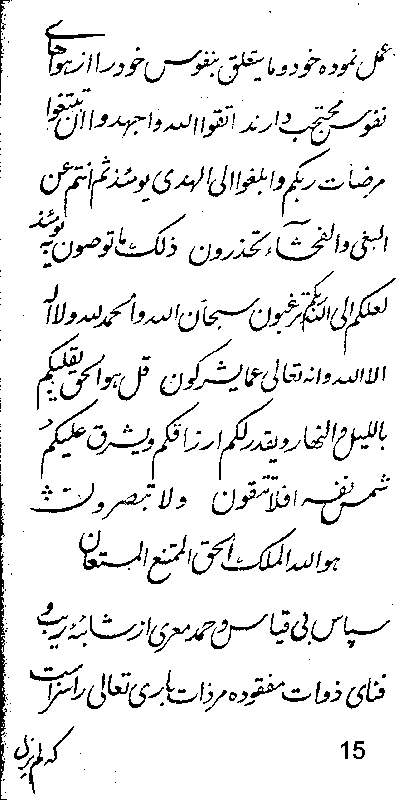 عمل نموده خود و ما یتعلق بنفوس خود را از هواهای
نفوس محتجب دارند اتقوا الله و اجهدوا ان تبتغوا
مرضات ربکم و ابلغوا الی الهدی یومئذ ثم انتم عن
البغی و الفحشآء تحذرون ذلک ما توصون به یومئذ
لعلکم الی الله ربکم ترغبون سبحان الله و الحمد لله و لا اله
الا الله و انه تعالی عما یشرکون قل هو الحق یقلبکم
باللیل و النهار و یقدر لکم ارزاقکم و یشرق علیکم
شمس نفسه افلا تتقون و لا تبصرون
هو الله الملک الحق الممتنع المستعان
سپاس بی قیاس و حمد معری از شابه ریب و
فنای ذوات مفقوده مر ذات باری تعالی را سزاست
15 که لم یزل